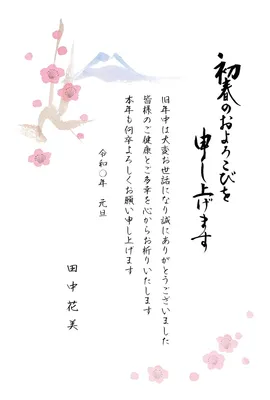 初春のおよろこびを
申し上げます
旧年中は大変お世話になり誠にありがとうございました
皆様のご健康とご多幸を心からお祈りいたします
本年も何卒よろしくお願い申し上げます
令和〇年　元旦
田中花美